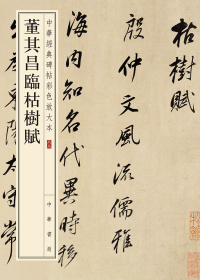 中華經典碑帖彩色放大本
董其昌臨枯樹賦
中華書局
枯樹賦
殷仲文風流儒雅
海內知名代異時移
出為東陽太守常